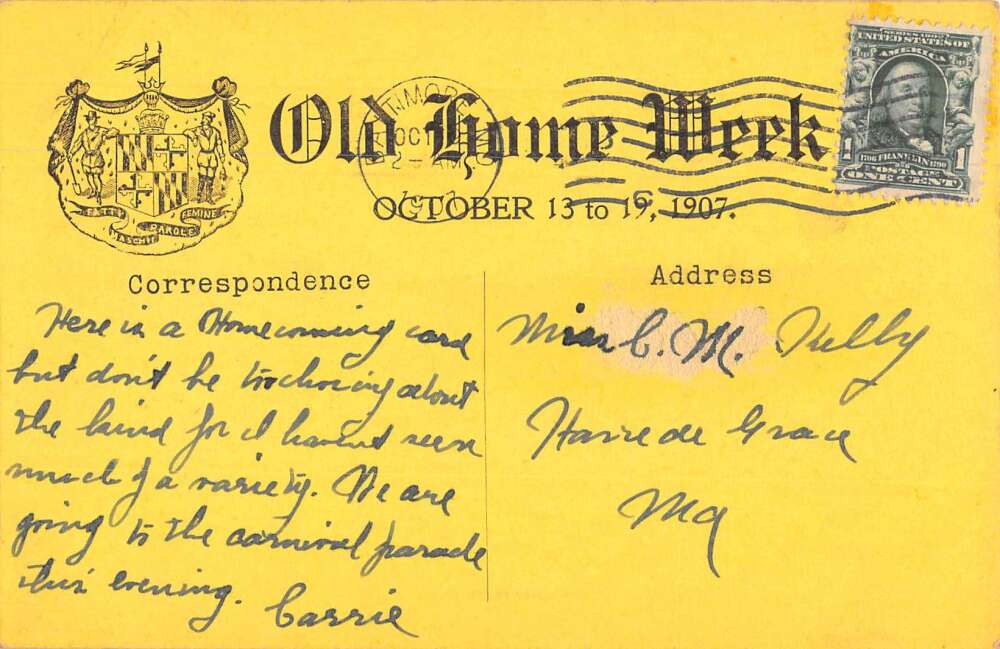 Old Home Week
OCTOBER 13 to 19, 1907.
FATTI MASCHII PAROLE FEMINE
BALTIMORE, MD
OCT
1907
SERIES 1902
UNITED STATES OF
AMERICA
1706 FRANKLIN 1790
1 POSTAGE 1
ONE CENT
Correspondence
Here is a Homecoming card
but don't be too choicy about
the kind for I havent seen
much of a variety. We are
going to the carnival parade
this evening.
Carrie
Address
Miss C. M. Kelly
Havre de Grace
Md